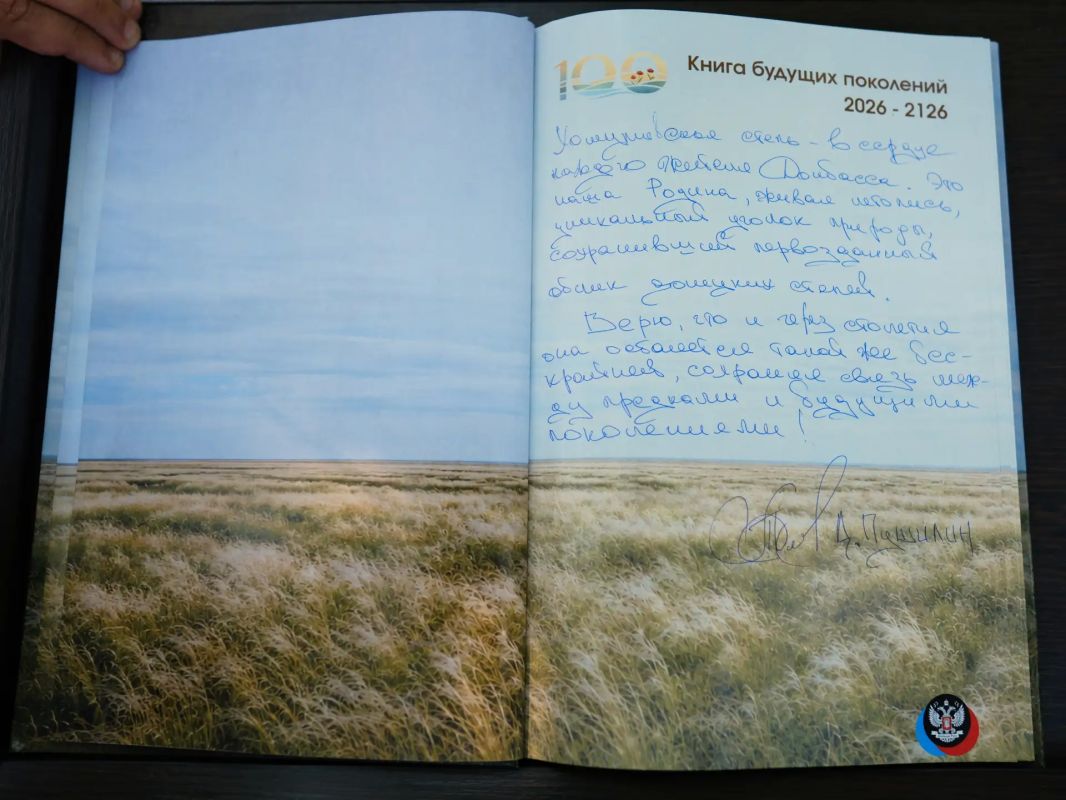 100
Книга будущих поколений
2026 - 2126
Хомутовская степь - в сердце
каждого жителя Донбасса. Это
наша Родина, живая летопись,
уникальный уголок природы,
сохранивший первозданный
облик донецких степей.
Верю, что и через столетия
она останется такой же бес-
крайней, сохраняя связь меж-
ду предками и будущими
поколениями!
Д. Пушилин